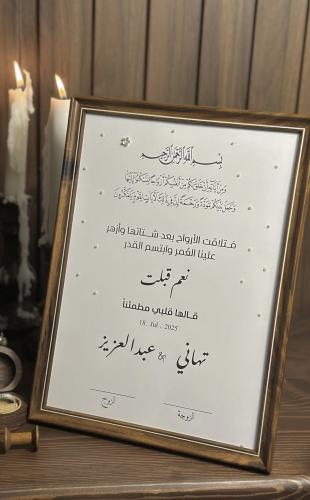 بسم الله الرحمن الرحيم
ومن آياته أن خلق لكم من أنفسكم أزواجا لتسكنوا إليها
وجعل بينكم مودة ورحمة إن في ذلك لآيات لقوم يتفكرون
فتلاقت الأرواح بعد شتاتها وأزهر
علينا العُمر وابتسم القدر
نعم قبلت
قالها قلبي مطمئناً
18. Jul . 2025
تهاني & عبدالعزيز
الزوج
الزوجة